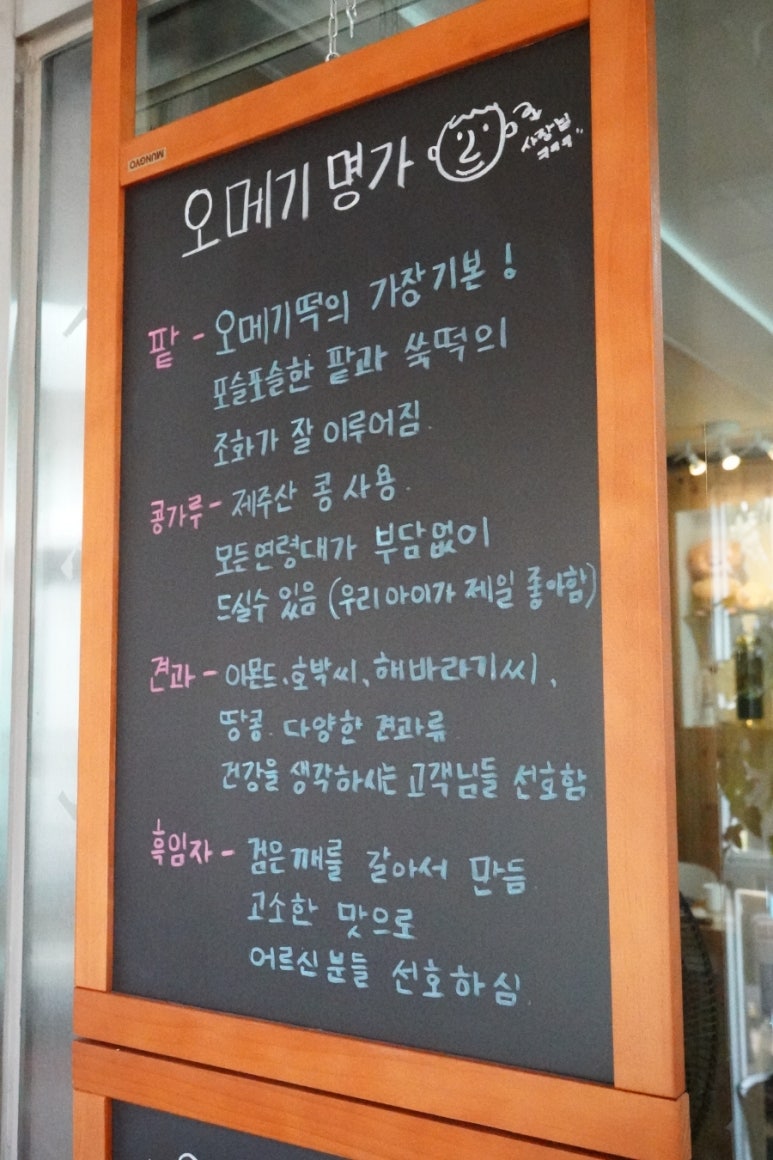 MUNGYO
오메기 명가
사장님
ㅋㅋㅋ
팥 - 오메기떡의 가장 기본!
포슬포슬한 팥과 쑥떡의
조화가 잘 이루어짐.
콩가루 - 제주산 콩 사용.
모든연령대가 부담없이
드실수 있음 (우리아이가 제일 좋아함)
견과 - 아몬드、호박씨、해바라기씨、
땅콩. 다양한 견과류.
건강을 생각하시는 고객님들 선호함
흑임자 - 검은깨를 갈아서 만듬.
고소한 맛으로
어르신분들 선호하심.